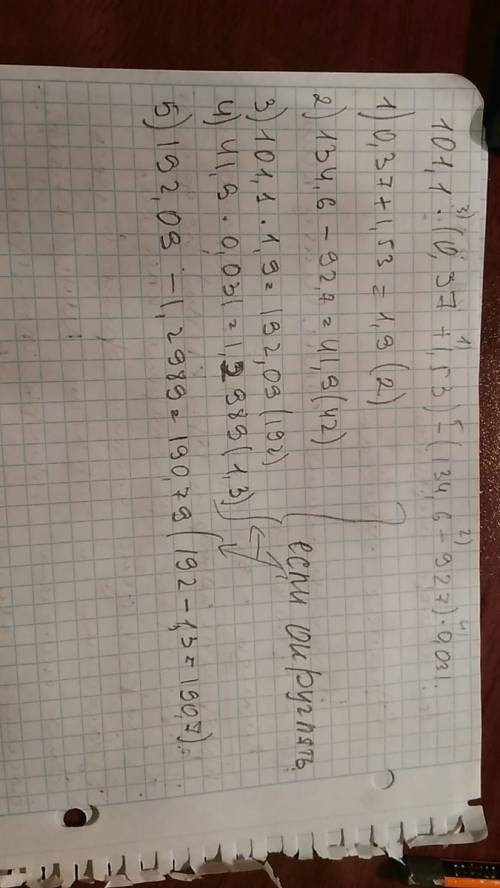 101,1 · (0,37 + 1,53) - (134,6 - 92,7) · 0,031.
3) 1) 5 2) 4
1) 0,37 + 1,53 = 1,9 (2)
2) 134,6 - 92,7 = 41,9 (42)
3) 101,1 · 1,9 = 192,09 (192)
4) 41,9 · 0,031 = 1,2989 (1,3)
если округлять
5) 192,09 - 1,2989 = 190,79 (192 - 1,3 = 190,7).